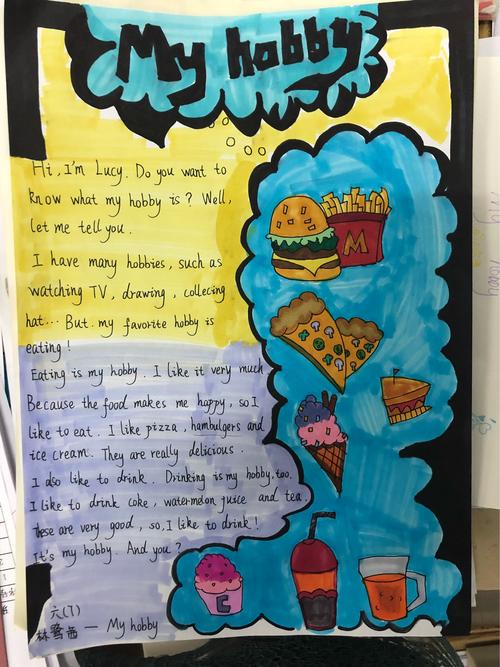 My hobby
Hi, I'm Lucy. Do you want to
know what my hobby is? Well,
let me tell you.
I have many hobbies, such as
watching TV, drawing, collecing
hat... But my favorite hobby is
eating!
Eating is my hobby. I like it very much
Because the food makes me happy, so I
like to eat. I like pizza, hambulgers and
ice cream. They are really delicious.
I also like to drink. Drinking is my hobby, too.
I like to drink coke, watermelon juice and tea.
These are very good, so, I like to drink!
It's my hobby. And you?
M
C
六(7)
林 — My hobby